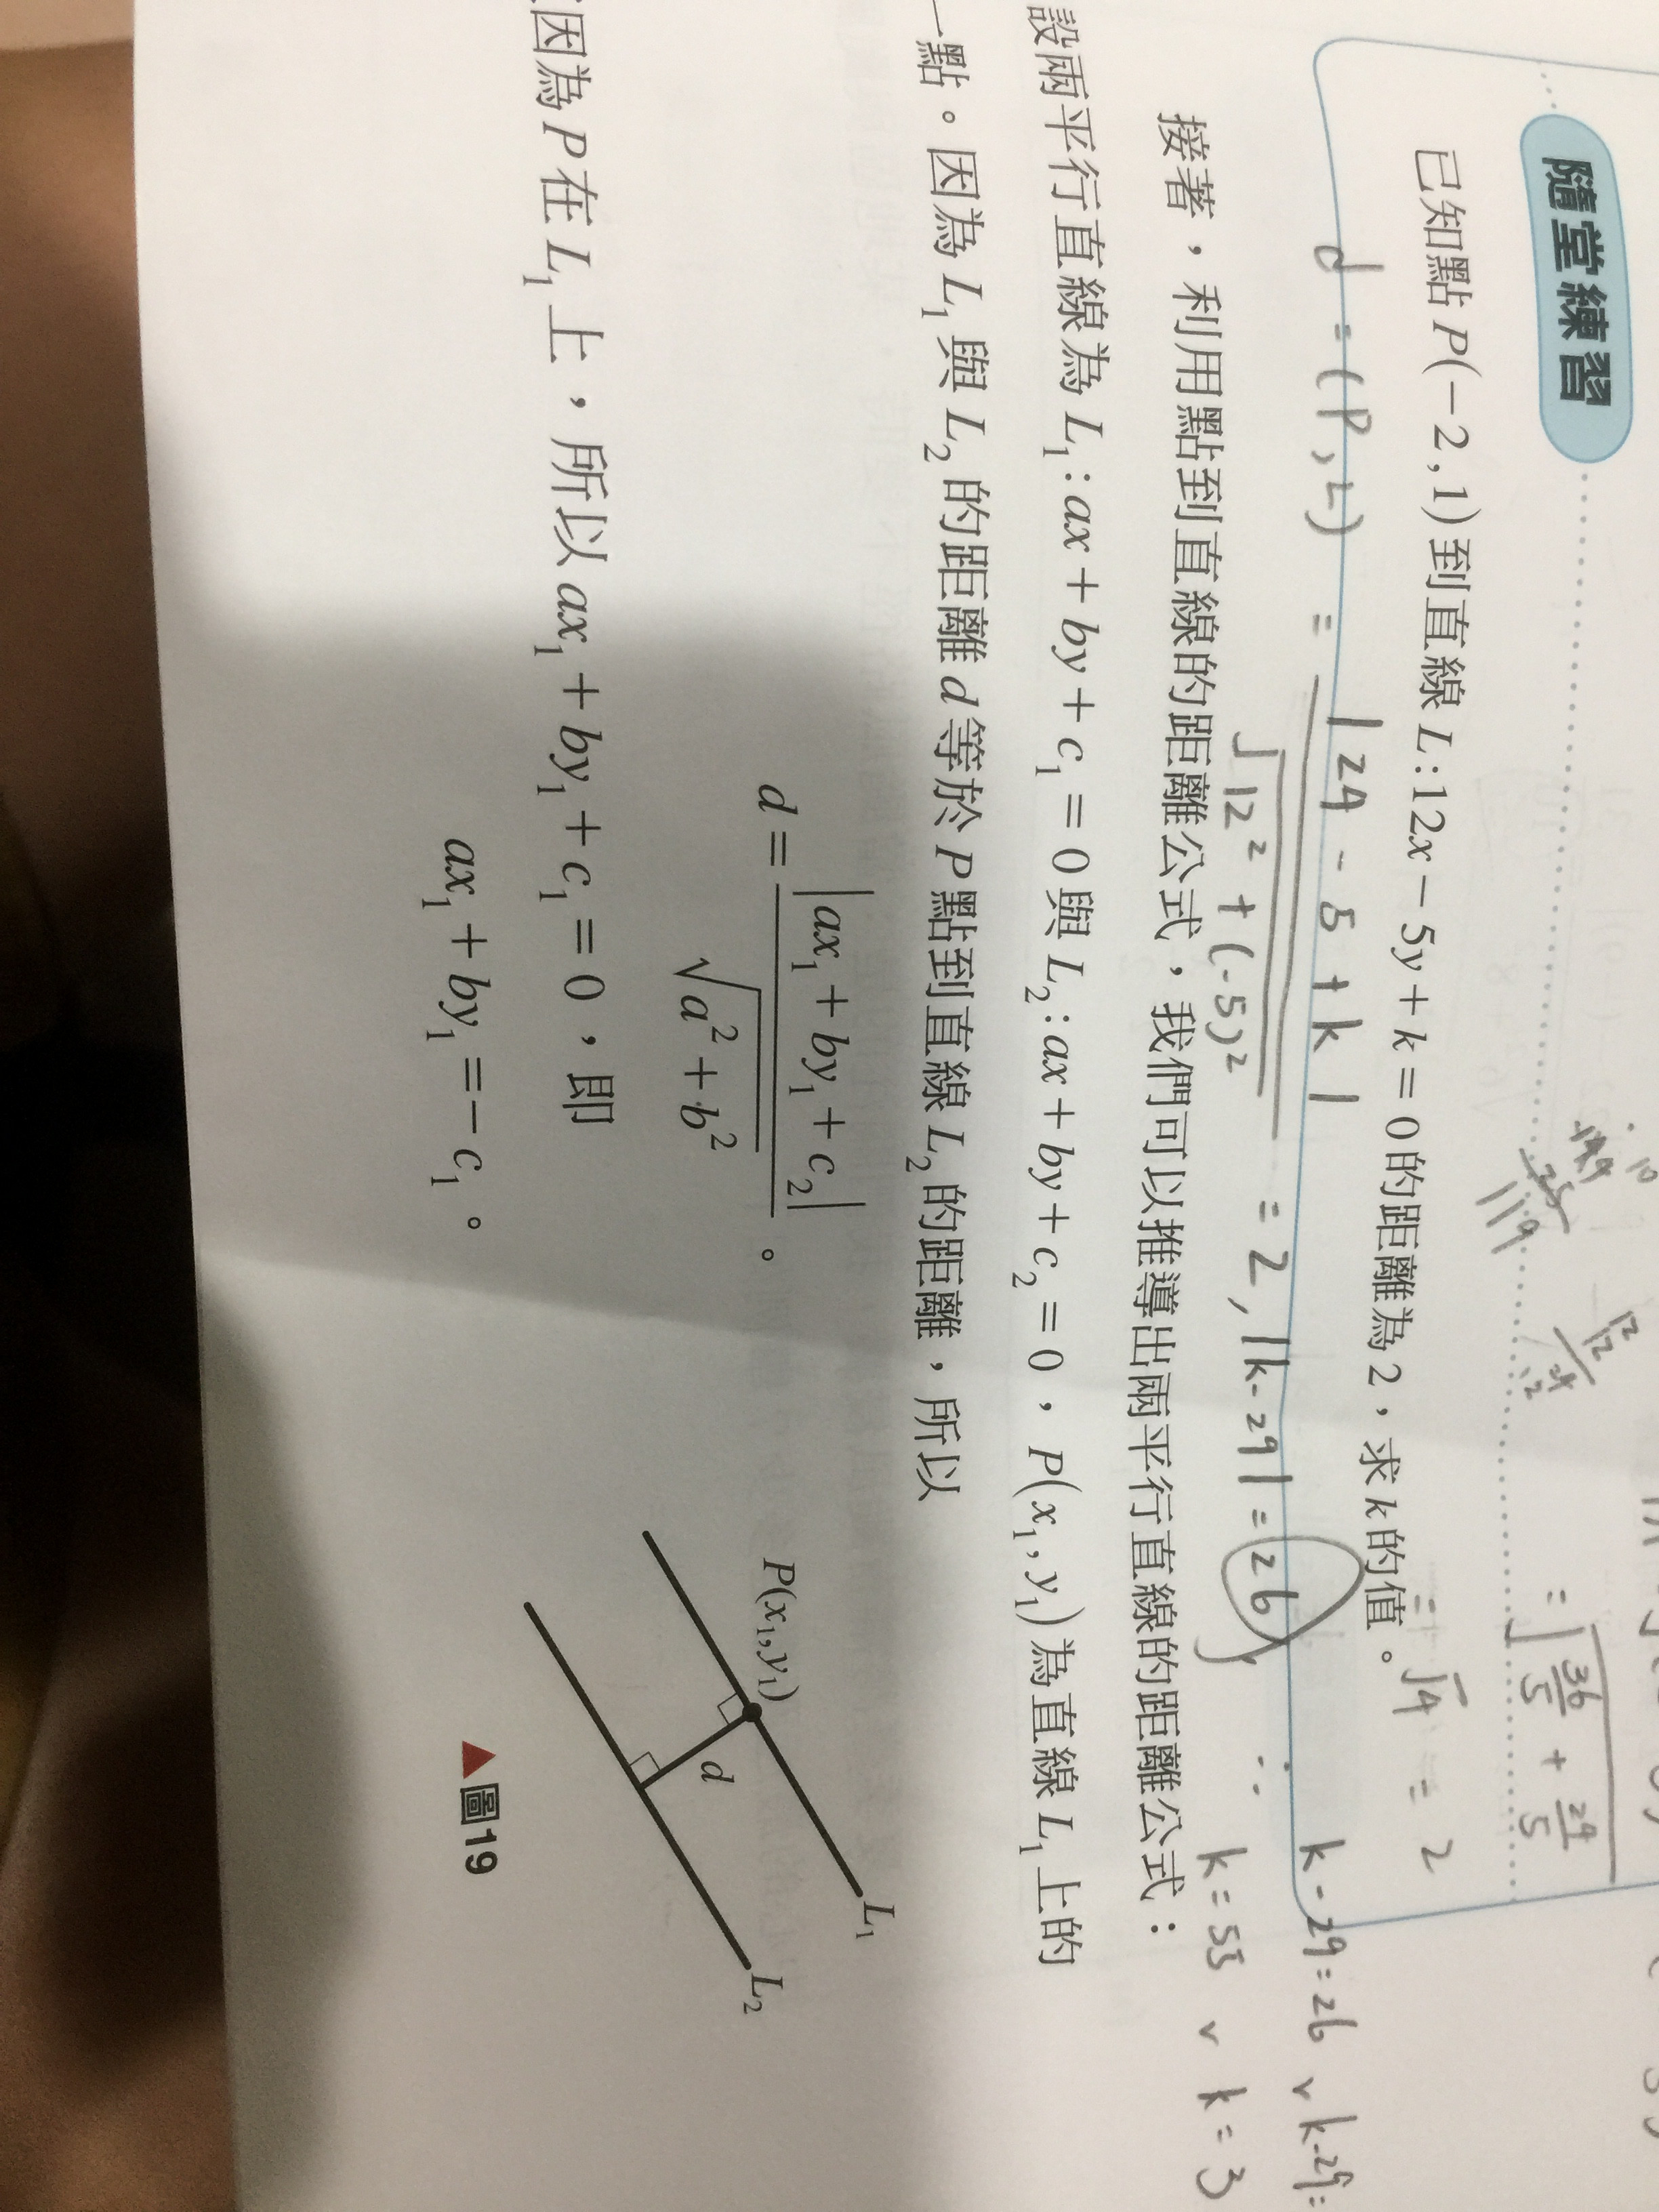 隨堂練習
已知點P(−2,1)到直線L:12x−5y+k=0的距離為2,求k的值。
d=(P,L) = |24-5+k| / √12²+(-5)² = 2, |k-29|=26,
∴ k-29=26 ∨ k-29=
k=55 ∨ k=3
= √36/5 + 29/5
= √4 = 2
119
接著,利用點到直線的距離公式,我們可以推導出兩平行直線的距離公式:
設兩平行直線為L₁:ax+by+c₁=0與L₂:ax+by+c₂=0,P(x₁,y₁)為直線L₁上的
一點。因為L₁與L₂的距離d等於P點到直線L₂的距離,所以
d=|ax₁+by₁+c₂| / √a²+b²。
因為P在L₁上,所以ax₁+by₁+c₁=0,即
ax₁+by₁=−c₁。
P(x₁,y₁)
d
L₁
L₂
▲圖19